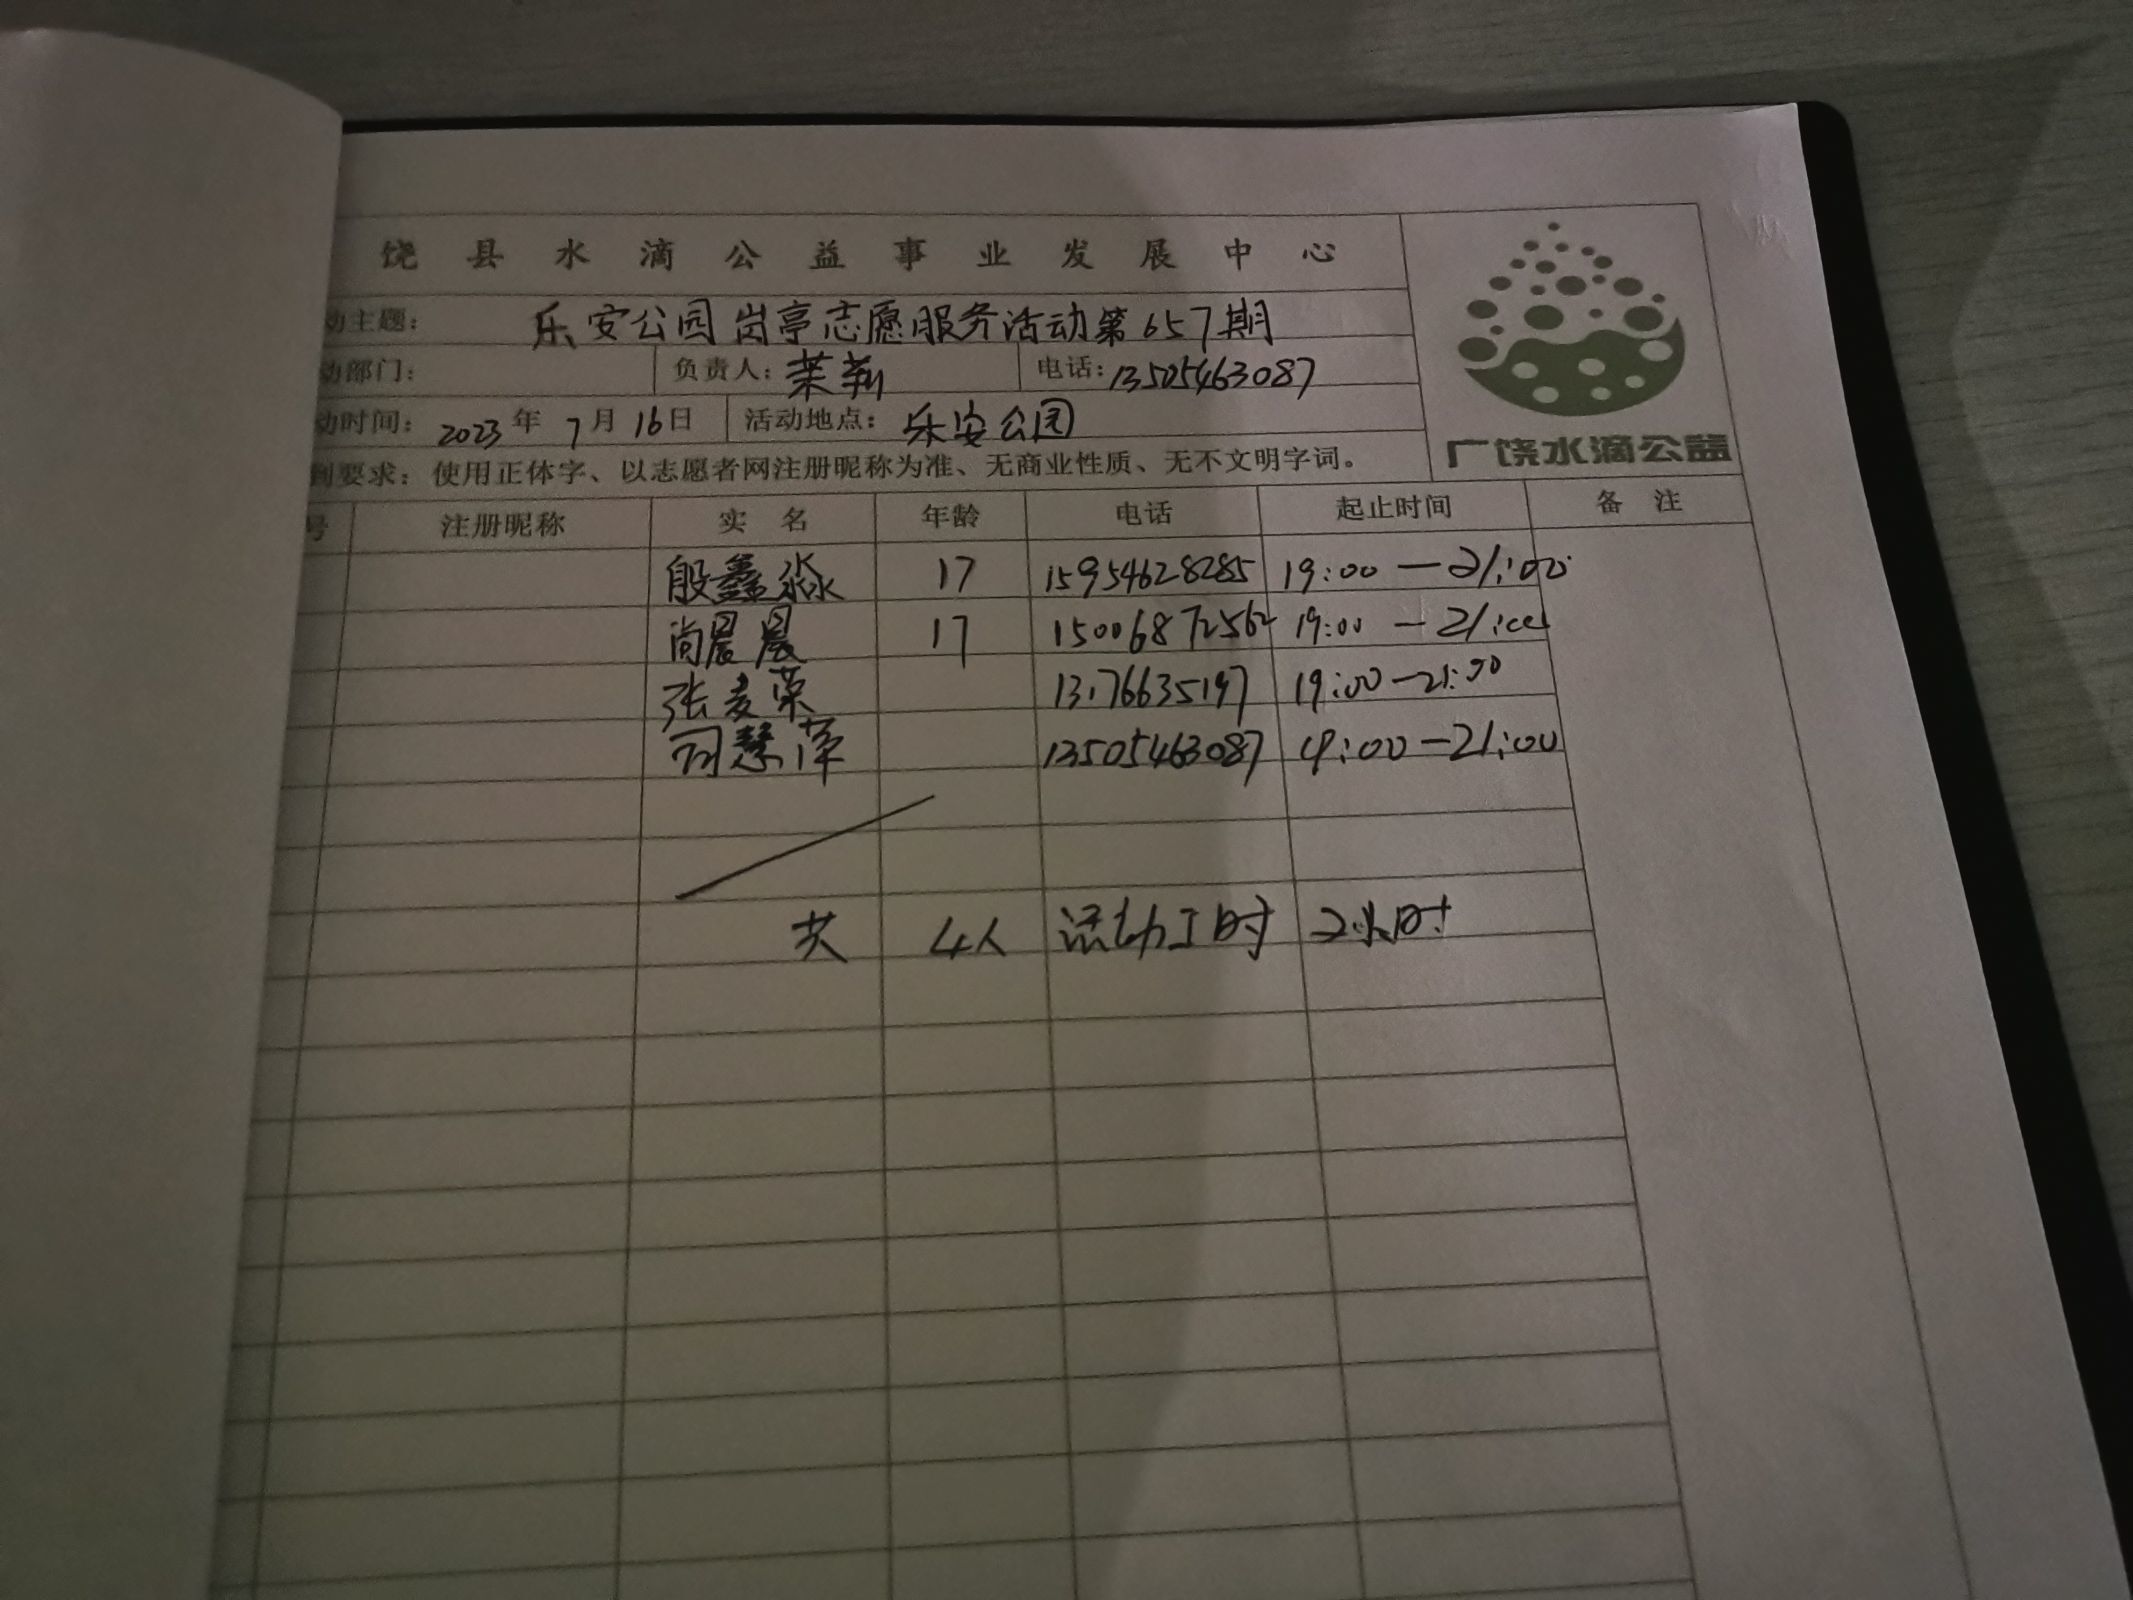 饶县水滴公益事业发展中心
动主题： 乐安公园岗亭志愿服务活动第657期
动部门： 负责人： 茉莉 电话：13505463087
动时间： 2023年7月16日 活动地点： 乐安公园
到要求：使用正体字、以志愿者网注册昵称为准、无商业性质、无不文明字词。
广饶水滴公益
号 注册昵称 实名 年龄 电话 起止时间 备注
殷鑫淼 17 15954628285 19:00—21:00
尚晨晨 17 15006872562 19:00—21:00
张麦荣 19:00—21:00
司慧萍 13505463087 19:00—21:00
共 4人 活动工时 2小时